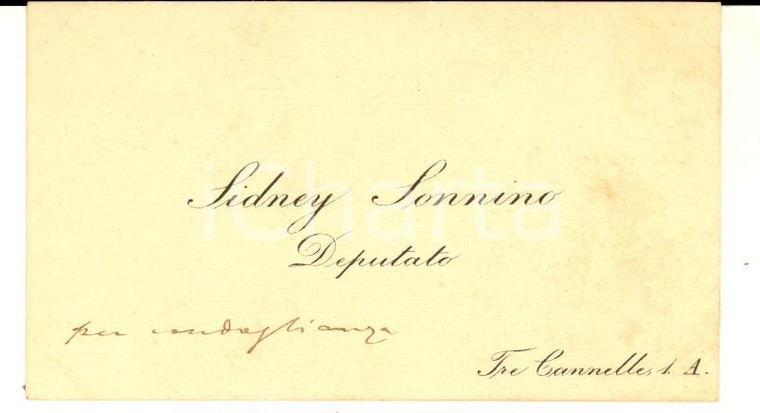 Sidney Sonnino
Deputato
per condoglianza
Tre Cannelle, 1. A.
iCharta